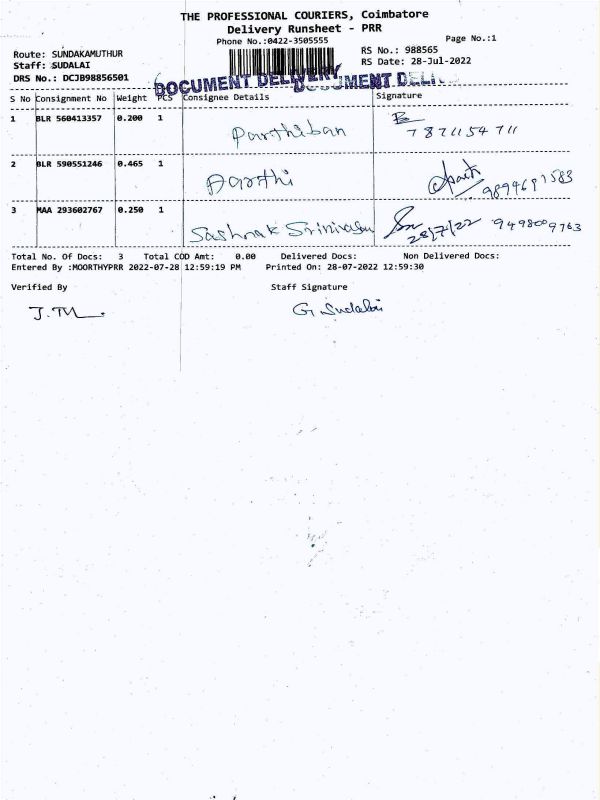 THE PROFESSIONAL COURIERS, Coimbatore
Delivery Runsheet - PRR
Phone No.:0422-3505555
Page No.:1
Route: SUNDAKAMUTHUR
RS No.: 988565
Staff: SUDALAI
RS Date: 28-Jul-2022
DRS No.: DCJB98856501
DOCUMENT DELIVERY
S No Consignment No Weight PCS Consignee Details Signature
1 BLR 560413357 0.200 1 Parthiban 7871154711
2 BLR 590551246 0.465 1 Aarthi 9894691583
3 MAA 293602767 0.250 1 Sashnak Srinivasan 28/7/22 9498009763
Total No. Of Docs: 3 Total COD Amt: 0.00 Delivered Docs: Non Delivered Docs:
Entered By :MOORTHYPRR 2022-07-28 12:59:19 PM Printed On: 28-07-2022 12:59:30
Verified By Staff Signature
G Sudalai